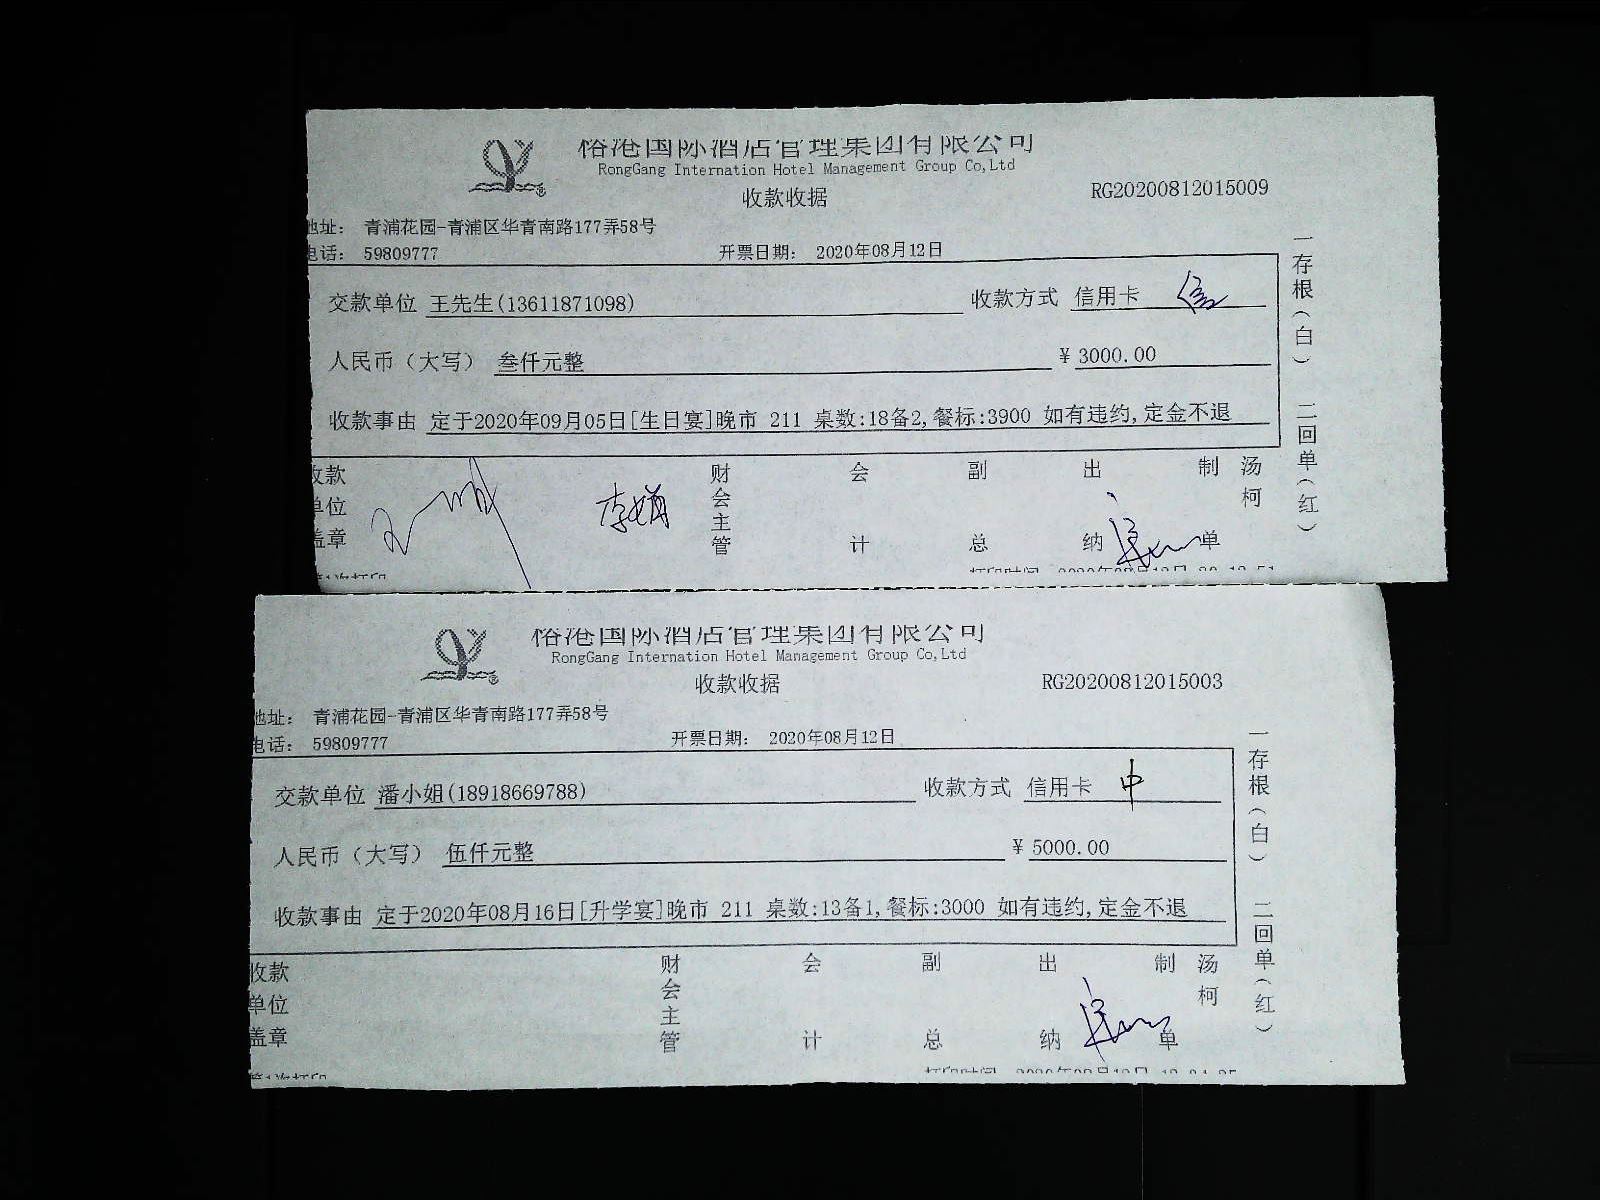 港国际酒店管理集团有限公司
RongGang Internation Hotel Management Group Co,Ltd
收款收据
RG20200812015009
地址： 青浦花园-青浦区华青南路177弄58号
电话： 59809777 开票日期： 2020年08月12日
交款单位 王先生(13611871098) 收款方式 信用卡 信
人民币（大写） 叁仟元整 ¥ 3000.00
收款事由 定于2020年09月05日[生日宴]晚市 211 桌数:18备2,餐标:3900 如有违约,定金不退
一存根（白） 二回单（红）
收款单位盖章 财会主管 会计 副总 出纳 制单 汤柯
第1次打印
打印时间
港国际酒店管理集团有限公司
RongGang Internation Hotel Management Group Co,Ltd
收款收据
RG20200812015003
地址： 青浦花园-青浦区华青南路177弄58号
电话： 59809777 开票日期： 2020年08月12日
交款单位 潘小姐(18918669788) 收款方式 信用卡 中
人民币（大写） 伍仟元整 ¥ 5000.00
收款事由 定于2020年08月16日[升学宴]晚市 211 桌数:13备1,餐标:3000 如有违约,定金不退
一存根（白） 二回单（红）
收款单位盖章 财会主管 会计 副总 出纳 制单 汤柯
第1次打印
打印时间